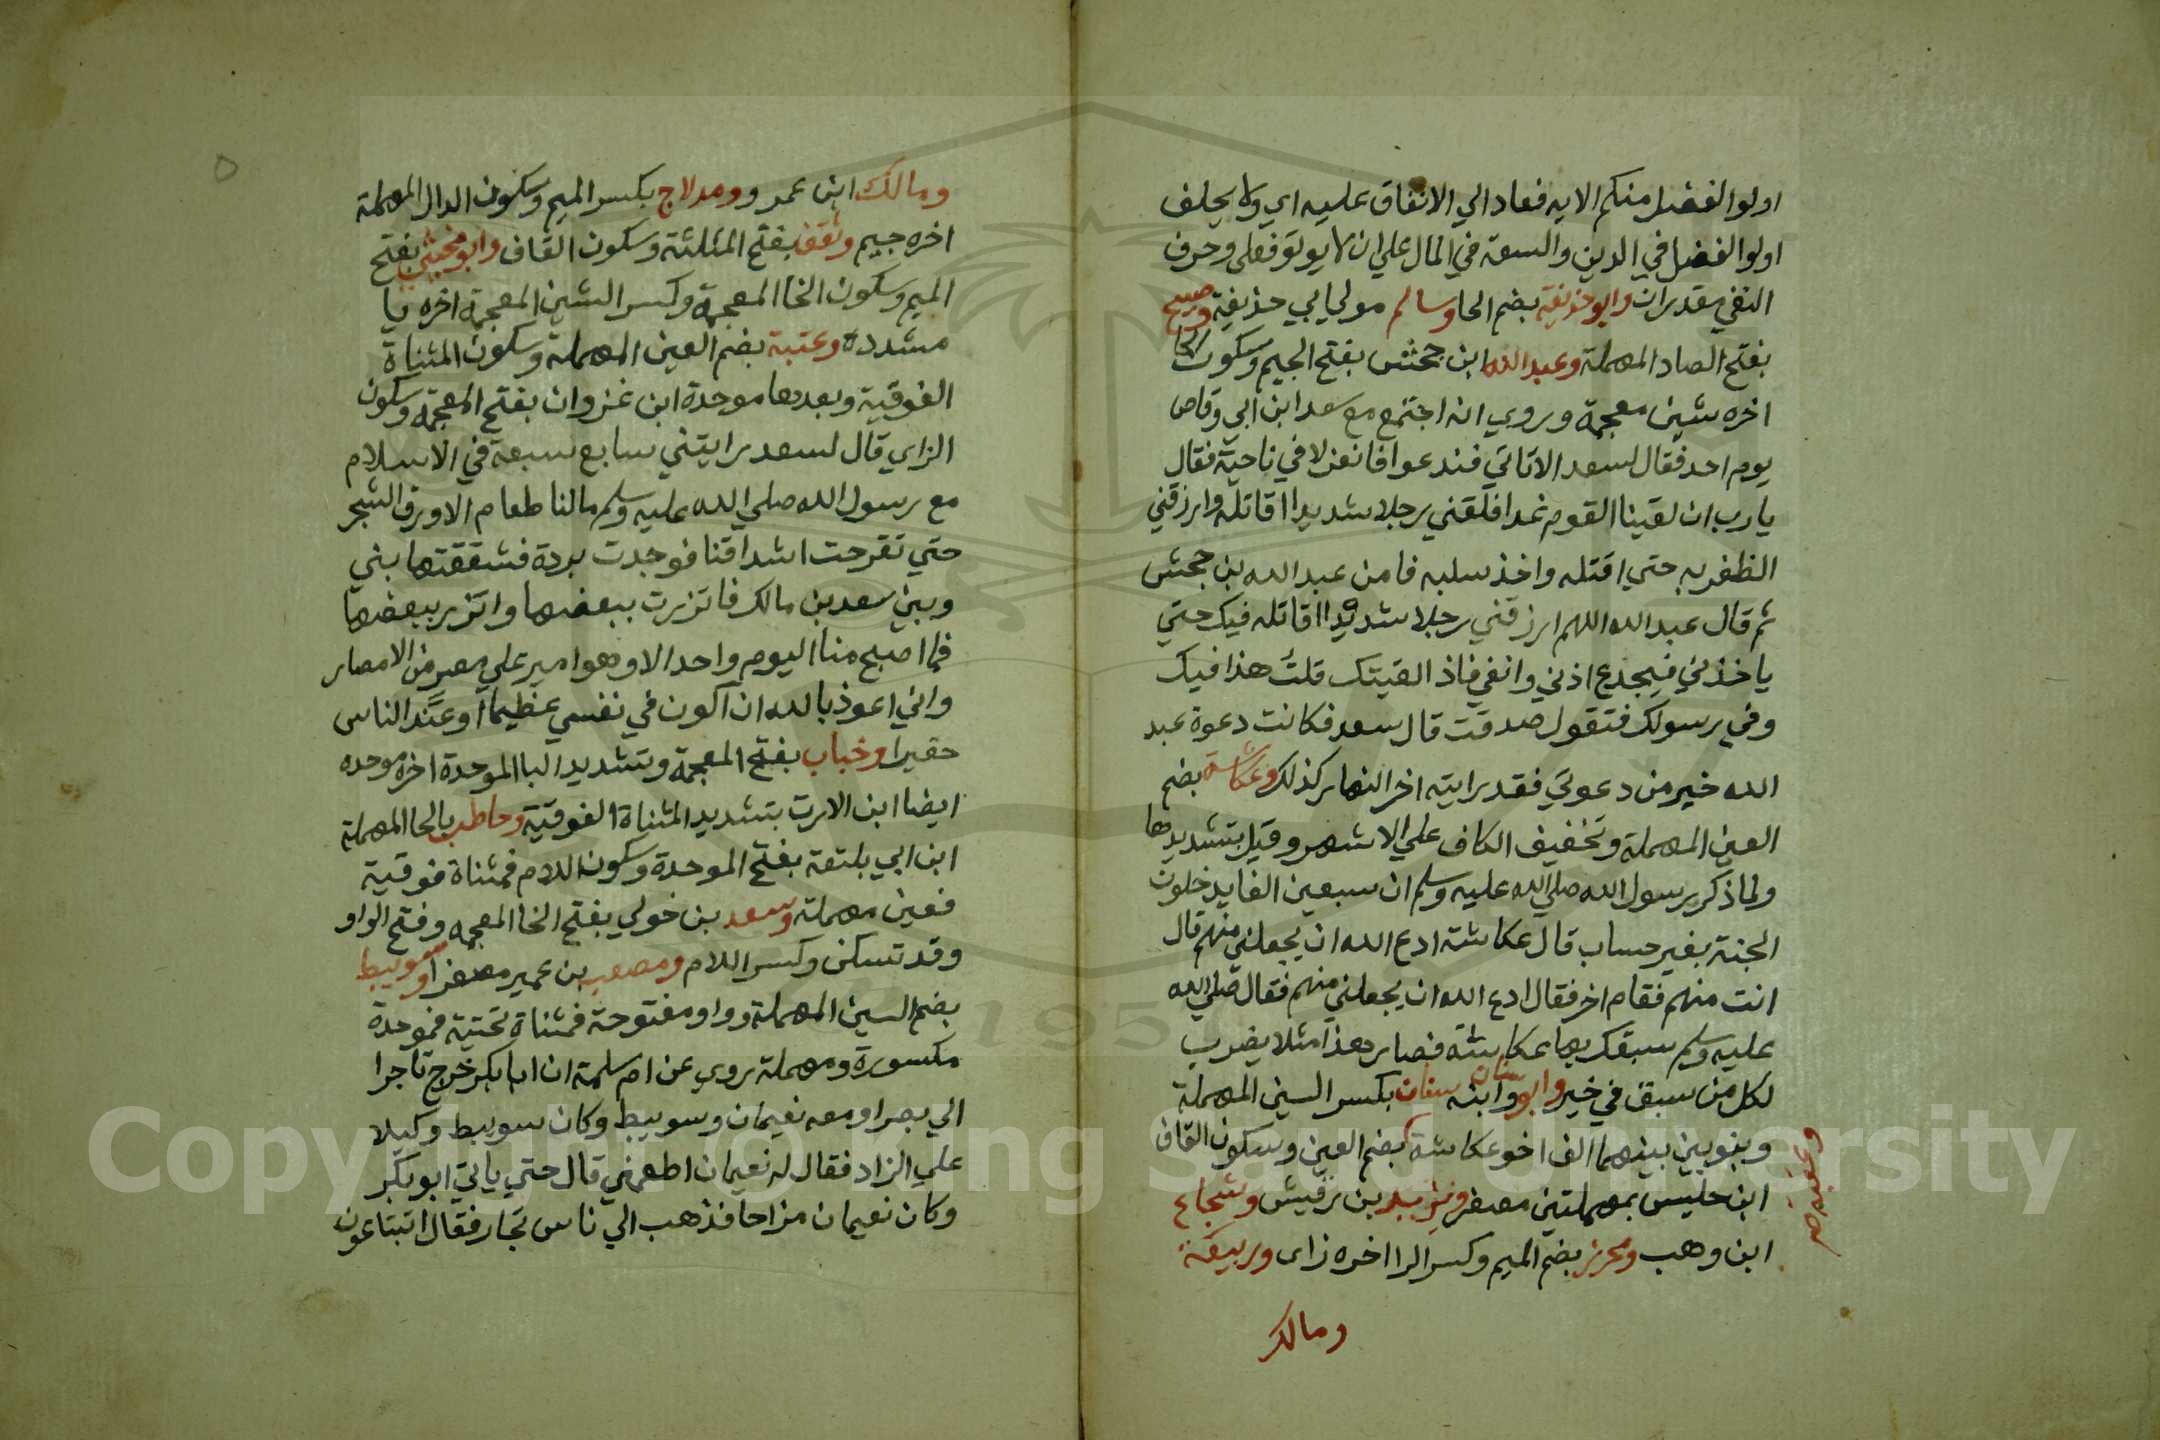 اولوا الفضل منكم الايه فعاد الي الانفاق عليه اي ولا يحلف
اولوا الفضل في الدين والسعة في المال علي ان لا يوتوفعلي وحرف
النفي مقدران وابو حذيفة بضم الحا وسالم مولي ابي حذيفة وصبيح
بفتح الصاد المهملة وعبد الله ابن جحش بفتح الجيم وسكون الحا
اخره شين معجمة وروي انه اجتمع مع سعد ابن ابي وقاص
يوم احد فقال لسعد الا تاتي فندعوا فانعزلا في ناحية فقال
يا رب ان لقينا القوم غدا فلقني رجلا شديدا اقاتله وارزقني
الظفر به حتي اقتله واخذ سلبه فامن عبد الله بن جحش
ثم قال عبد الله اللهم ارزقني رجلا شديدا اقاتله فيك حتي
ياخذني فيجدع اذني وانفي فاذ القيتك قلت هذا فيك
وفي رسولك فتقول صدقت قال سعد فكانت دعوة عبد
الله خير من دعوتي فقد رايته اخر النهار كذلك وعكاشة بضم
العين المهملة وتخفيف الكاف علي الاشهر وقيل بتشديدها
ولما ذكر رسول الله صلي الله عليه وسلم ان سبعين الفا يدخلون
الجنة بغير حساب قال عكاشة ادع الله ان يجعلني منهم قال
انت منهم فقام اخر فقال ادع الله ان يجعلني منهم فقال صلي الله
عليه وسلم سبقك بها عكاشة فصار هذا مثلا يضرب
لكل من سبق في خير وابو سنان وابنه سنان بكسر السين المهملة
وبنونين بينهما الف اخو عكاشة بضم العين وسكون القاف
وعقبة صح
ابن حليس بمهملتين مصغر ويزيد بن رقيش وشجاع
ابن وهب ومحرز بضم الميم وكسر الرا اخره زاى وربيعة
ومالك
ومالك ابن عمرو ومدلاج بكسر الميم وسكون الدال المهملة
اخره جيم وثقف بفتح المثلثة وسكون القاف وابو مخشي بفتح
الميم وسكون الخا المعجمة وكسر الشين المعجمة اخره يا
مشددة وعتبة بضم العين المهملة وسكون المثناة
الفوقية وبعدها موحدة ابن غزوان بفتح المعجمة وسكون
الزاي قال لسعد رايتني سابع سبعة في الاسلام
مع رسول الله صلي الله عليه وسلم مالنا طعام الا ورق الشجر
حتي تقرحت اشداقنا فوجدت بردة فشققتها بيني
وبين سعد بن مالك فاتزرت ببعضها واتزر ببعضها
فما اصبح منا اليوم واحد الا وهو امير علي مصر من الامصار
واني اعوذ بالله ان اكون في نفسي عظيما او عند الناس
حقيرا وخباب بفتح المعجمة وتشديد البا الموحدة اخره موحده
ايضا ابن الارت بتشديد المثناة الفوقية وحاطب بالحا المهملة
ابن ابي بلتعة بفتح الموحدة وسكون اللام فمثناة فوقية
فعين مهملة وسعد بن خولي بفتح الخا المعجمه وفتح الواو
وقد تسكن وكسر اللام ومصعب بن عمير مصغرا وسويبط
بضم السين المهملة وواو مفتوحة فمثناة تحتية فموحدة
مكسورة ومهملة روي عن ام سلمة ان ابا بكر خرج تاجرا
الي بصرا ومعه نعيمان وسويبط وكان سويبط وكيلا
علي الزاد فقال له نعيمان اطعمني قال حتي ياتي ابو بكر
وكان نعيمان مزاحا فذهب الي ناس تجار فقال اتبتاعون
Copyright © King Saud University
1957